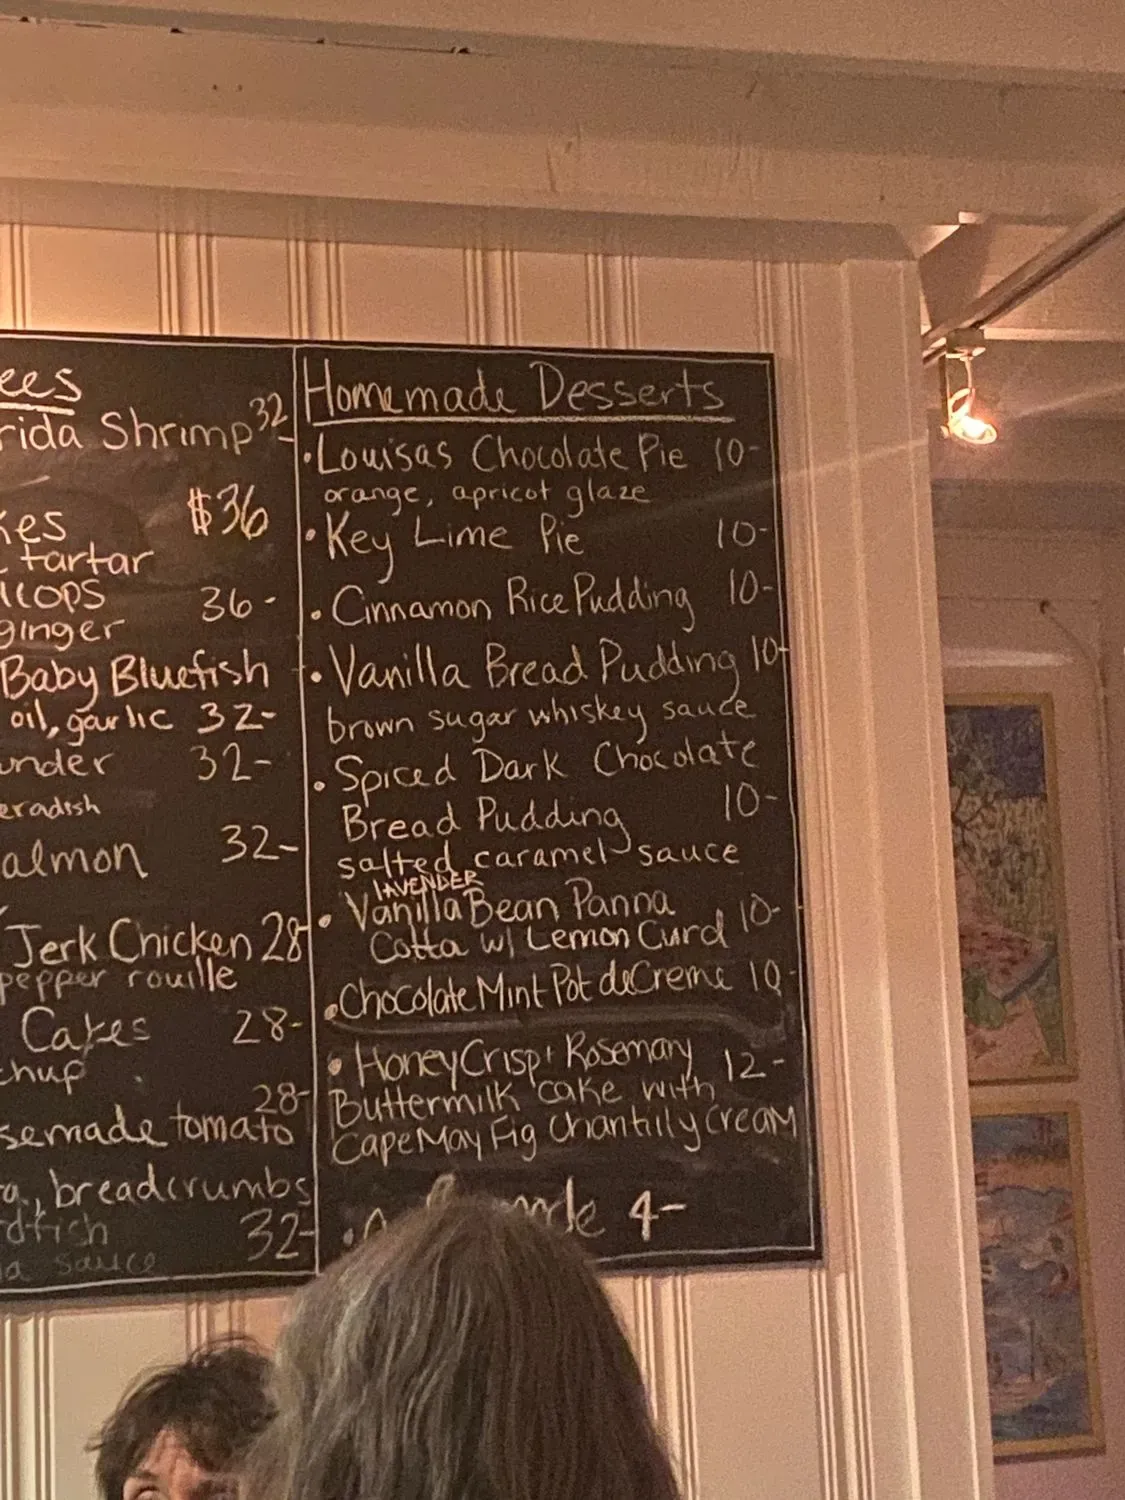 ees
rida Shrimp 32-
$36
kes
tartar
36-
ginger
Baby Bluefish
oil, garlic 32-
under 32-
eradish
almon 32-
Jerk Chicken 28-
pepper rouille
Cakes 28-
chup
28-
semade tomato
breadcrumbs
dfish 32-
sauce
Homemade Desserts
• Louisas Chocolate Pie 10-
orange, apricot glaze
• Key Lime Pie 10-
• Cinnamon Rice Pudding 10-
• Vanilla Bread Pudding 10-
brown sugar whiskey sauce
• Spiced Dark Chocolate
Bread Pudding 10-
salted caramel sauce
LAVENDER
• Vanilla Bean Panna
Cotta w/ Lemon Curd 10-
• Chocolate Mint Pot de Creme 10-
• HoneyCrisp + Rosemary 12-
Buttermilk cake with
Cape May Fig Chantilly Cream
4-